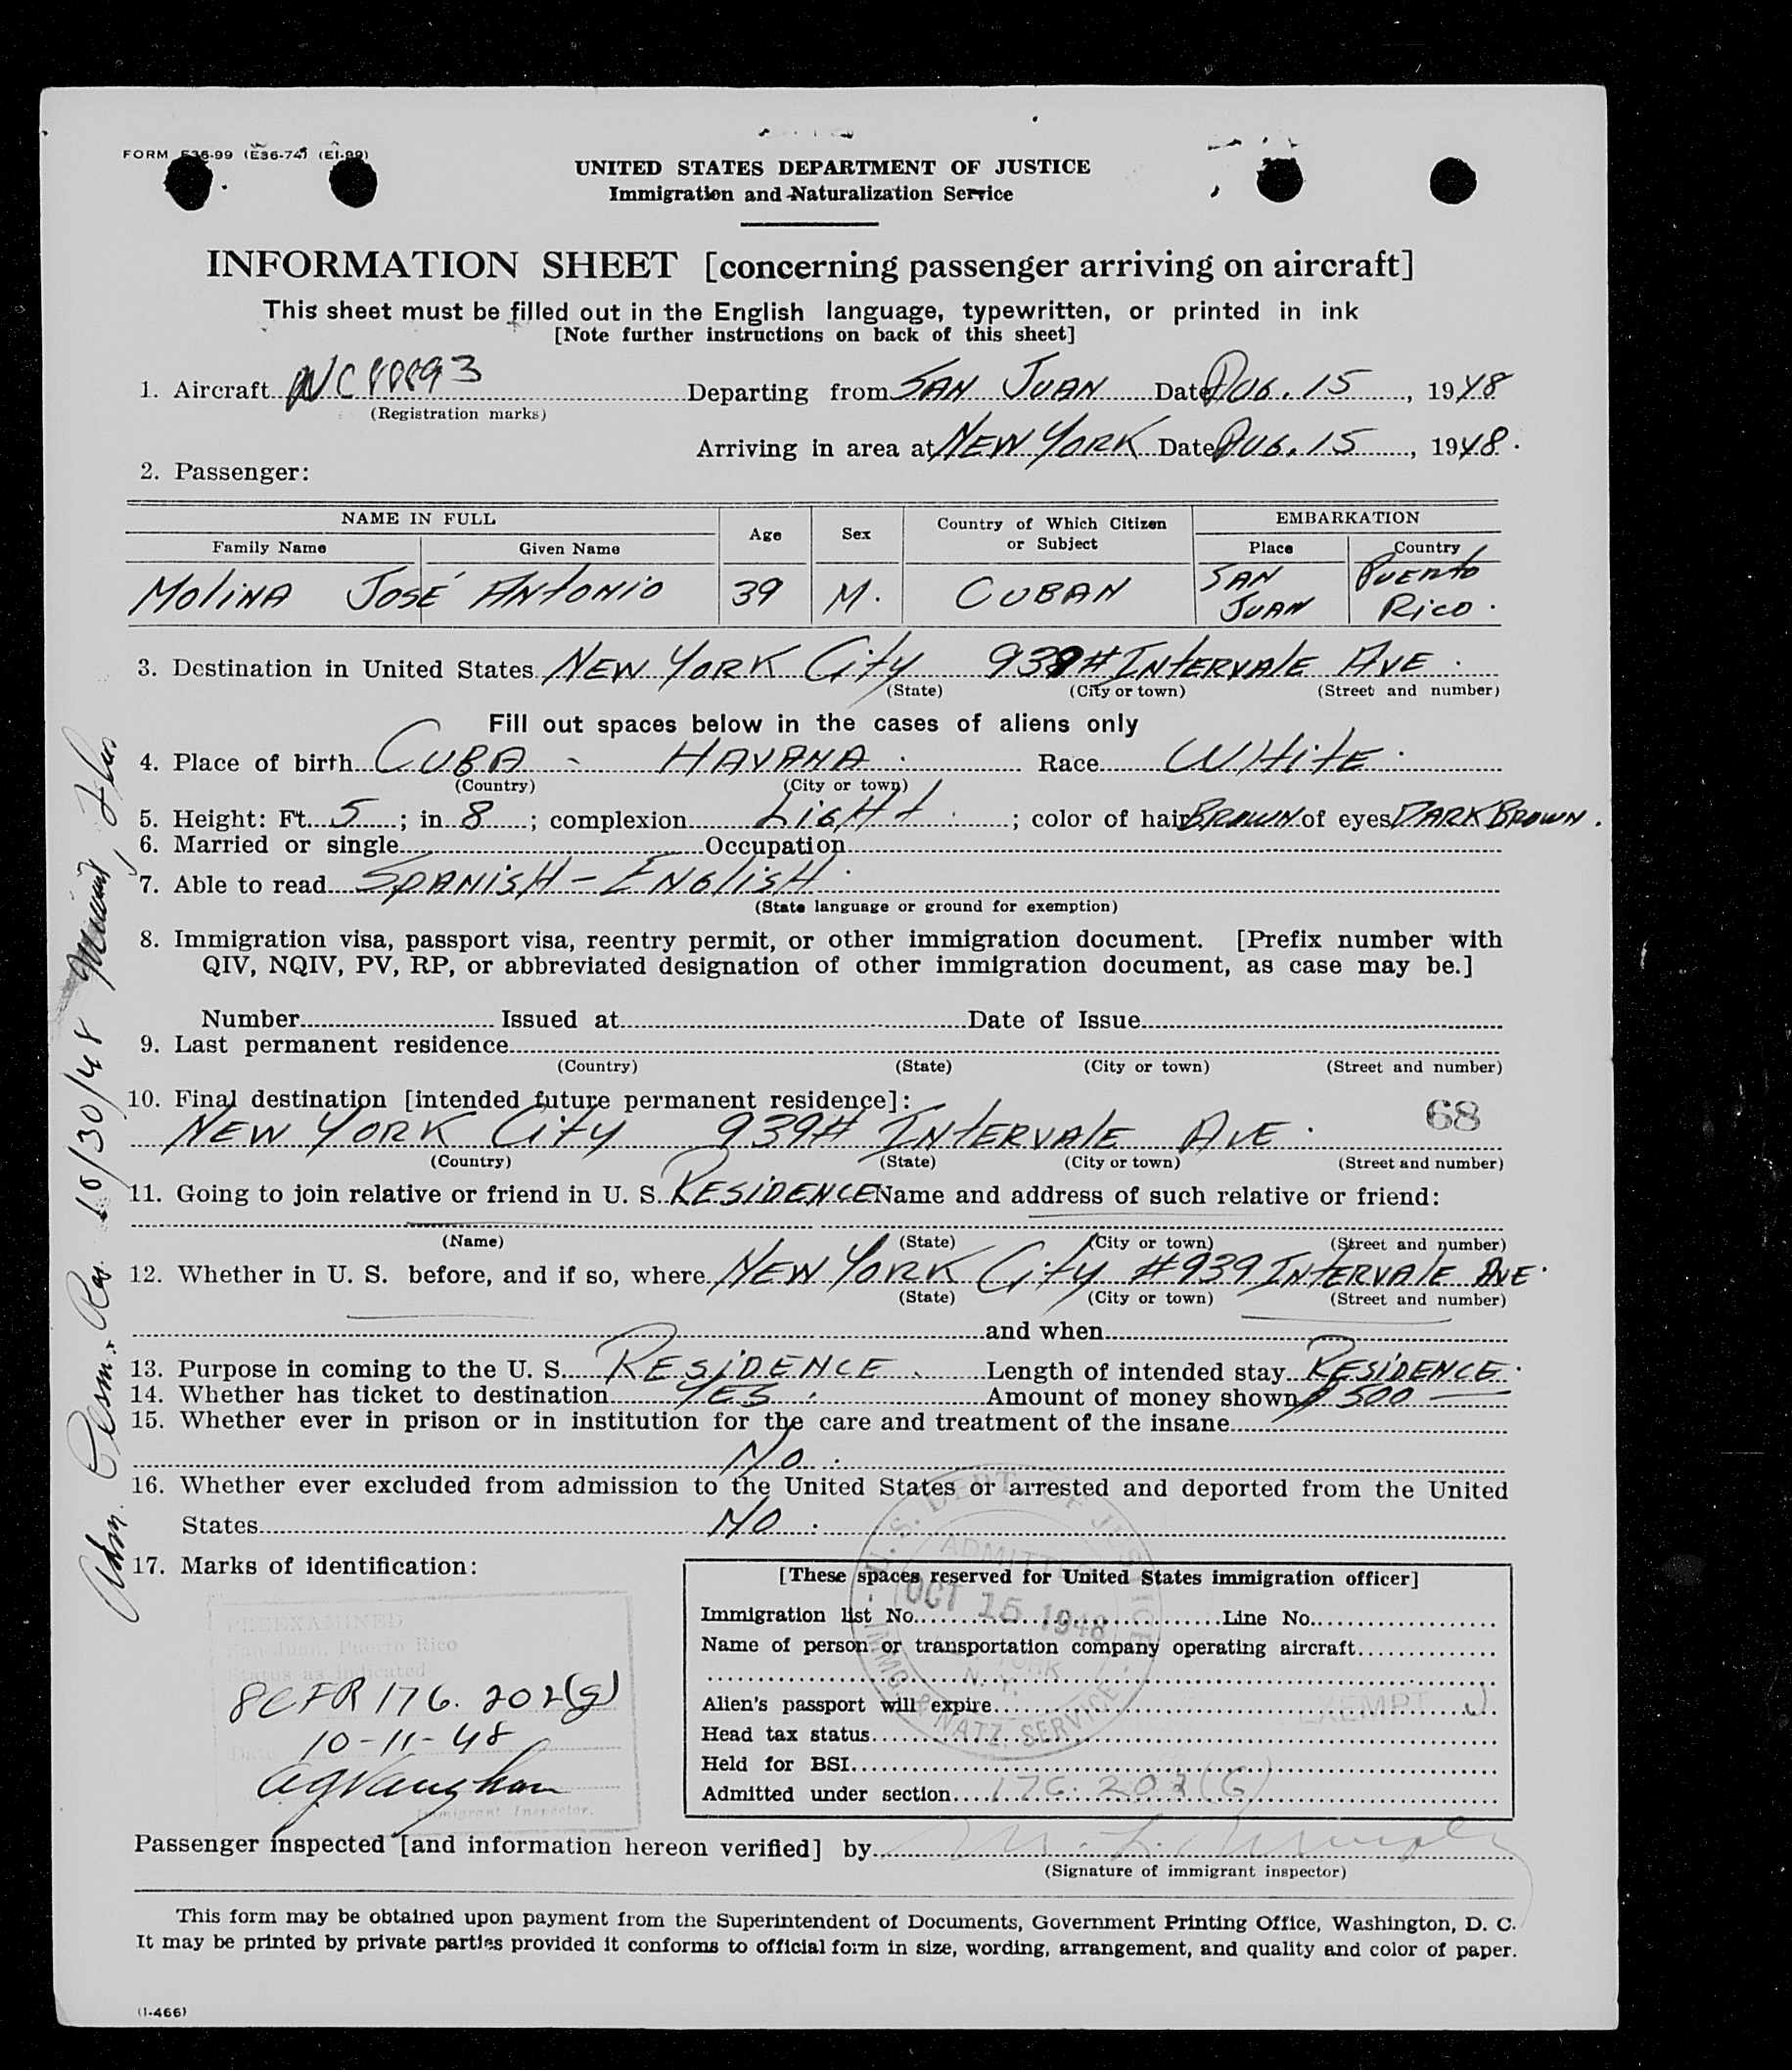 FORM E36-99 (E36-74) (EI-99)
UNITED STATES DEPARTMENT OF JUSTICE
Immigration and Naturalization Service
INFORMATION SHEET [concerning passenger arriving on aircraft]
This sheet must be filled out in the English language, typewritten, or printed in ink
[Note further instructions on back of this sheet]
1. Aircraft Departing from SAN JUAN Date AUG. 15, 1948
(Registration marks)
Arriving in area at NEW YORK Date AUG. 15, 1948.
2. Passenger:
NAME IN FULL Age Sex Country of Which Citizen or Subject EMBARKATION
Family Name Given Name Place Country
MOLINA JOSÉ ANTONIO 39 M. CUBAN SAN JUAN PUERTO RICO.
3. Destination in United States NEW YORK City 939# INTERVALE AVE.
(State) (City or town) (Street and number)
Fill out spaces below in the cases of aliens only
4. Place of birth CUBA - HAVANA. Race WHITE.
(Country) (City or town)
5. Height: Ft. 5; in 8; complexion LIGHT.; color of hair BROWN of eyes DARK BROWN.
6. Married or single Occupation
7. Able to read SPANISH - ENGLISH.
(State language or ground for exemption)
8. Immigration visa, passport visa, reentry permit, or other immigration document. [Prefix number with
QIV, NQIV, PV, RP, or abbreviated designation of other immigration document, as case may be.]
Number Issued at Date of Issue
9. Last permanent residence
(Country) (State) (City or town) (Street and number)
10. Final destination [intended future permanent residence]:
68
NEW YORK City 939# INTERVALE AVE.
(Country) (State) (City or town) (Street and number)
11. Going to join relative or friend in U. S. RESIDENCE Name and address of such relative or friend:
(Name) (State) (City or town) (Street and number)
12. Whether in U. S. before, and if so, where NEW YORK City #939 INTERVALE AVE.
(State) (City or town) (Street and number)
and when
13. Purpose in coming to the U. S. RESIDENCE. Length of intended stay RESIDENCE.
14. Whether has ticket to destination YES. Amount of money shown $ 500 —
15. Whether ever in prison or in institution for the care and treatment of the insane
NO.
16. Whether ever excluded from admission to the United States or arrested and deported from the United
States NO.
17. Marks of identification:
PREEXAMINED
San Juan, Puerto Rico
Status as Indicated
8CFR 176.202(g)
Date 10-11-48
AGVaughan
Immigrant Inspector.
[These spaces reserved for United States immigration officer]
Immigration list No. Line No.
Name of person or transportation company operating aircraft
Alien's passport will expire
EXEMPT
Head tax status
Held for BSI
Admitted under section 176.202(G)
U. S. DEPT. OF JUSTICE
ADMITTED
OCT 15 1948
N. Y.
IMMG. & NATZ. SERVICE
Passenger inspected [and information hereon verified] by
(Signature of immigrant inspector)
This form may be obtained upon payment from the Superintendent of Documents, Government Printing Office, Washington, D. C.
It may be printed by private parties provided it conforms to official form in size, wording, arrangement, and quality and color of paper.
(I-466)
Adm. Perm. Res. 10/30/48 Miami, Fla